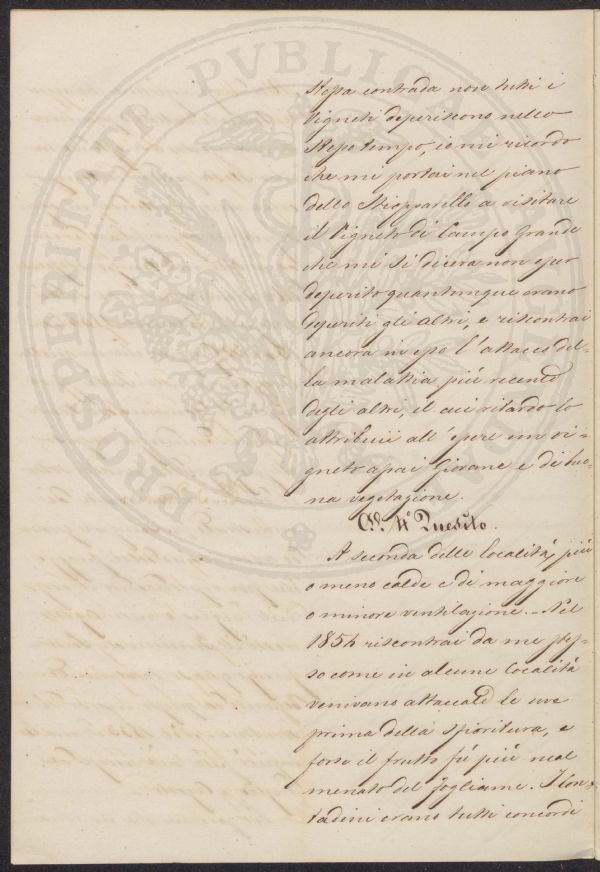 PROSPERITATI PVBLICAE AVGENDAE
stessa contrada non tutti i
Vigneti deperiscono nello
stesso tempo, io mi ricordo
che mi portai nel piano
dello a visitare
il Vigneto di Campo Grande
che mi si diceva non esser
deperito quantunque erano
deperiti gli altri, e riscontrai
ancora in esso l'attacco del-
la malattia più recente
degli altri, il cui ritardo lo
attribuii all'essere un vi-
gneto assai Giovane e di buo-
na vegetazione.
4° Quesito.
A seconda delle località, più
o meno calde e di maggiore
o minore ventilazione. Nel
1854 riscontrai da me stes-
so come in alcune località
venivano attaccate le uve
prima della sfioritura, e
forse il frutto fù più mal
menato del fogliame. I Con-
tadini erano tutti concordi